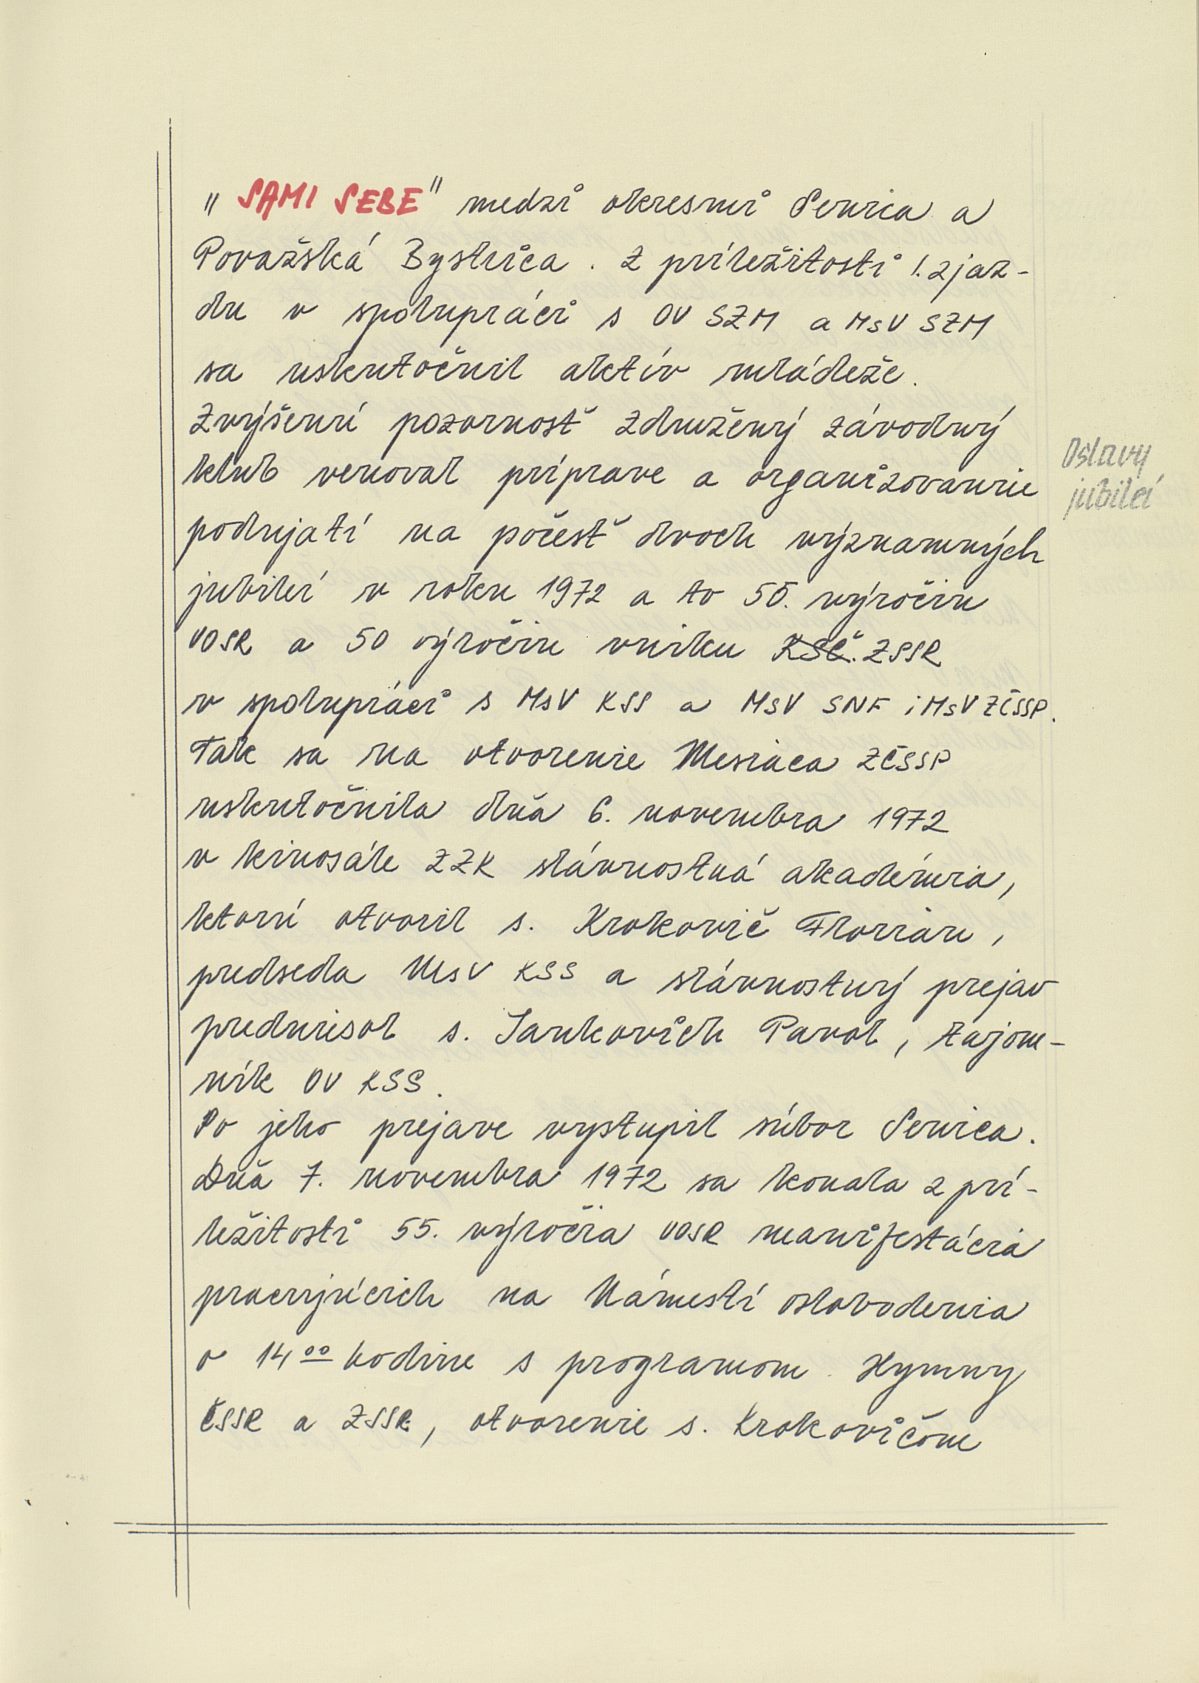 „SAMI SEBE" medzi okresmi Senica a
Považská Bystrica. Z príležitosti 1. zjaz-
du v spolupráci s OV SZM a MsV SZM
sa uskutočnil aktív mládeže.
Zvýšenú pozornosť Združený závodný
klub venoval príprave a organizovaniu
podujatí na počesť dvoch významných
jubileí v roku 1972 a to 55. výročiu
VOSR a 50 výročiu vniku KSČ. ZSSR
v spolupráci s MsV KSS a MsV SNF i MsV ZČSSP.
Tak sa na otvorenie Mesiaca ZČSSP
uskutočnila dňa 6. novembra 1972
v kinosále ZZK slávnostná akadémia,
ktorú otvoril s. Krokovič Florián,
predseda MsV KSS a slávnostný prejav
predniesol s. Jankovich Pavol, tajom-
ník OV KSS.
Po jeho prejave vystupil súbor Senica.
Dňa 7. novembra 1972 sa konala z prí-
ležitosti 55. výročia VOSR manifestácia
pracujúcich na Námestí oslobodenia
o 14 00 hodine s programom. Hymny
ČSSR a ZSSR, otvorenie s. Krokovičom
Oslavy
jubileí